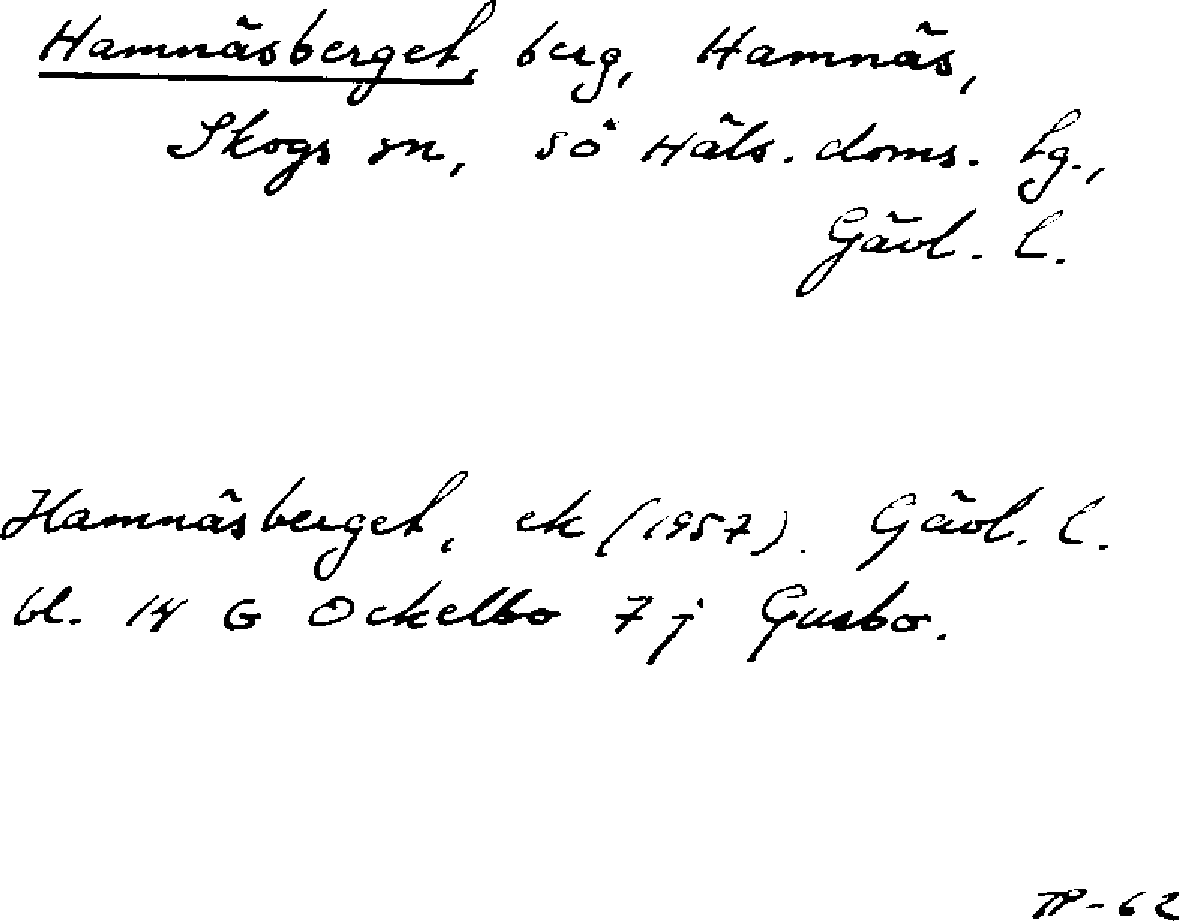 Hamnäsberget, berg, Hamnäs,
Skogs sn, sö Häls. doms. hg.,
Gävl. l.
Hamnäsberget, ek (1957). Gävl. l.
bl. 14 G Ockelbo 7 j Gusbo.
TP-62